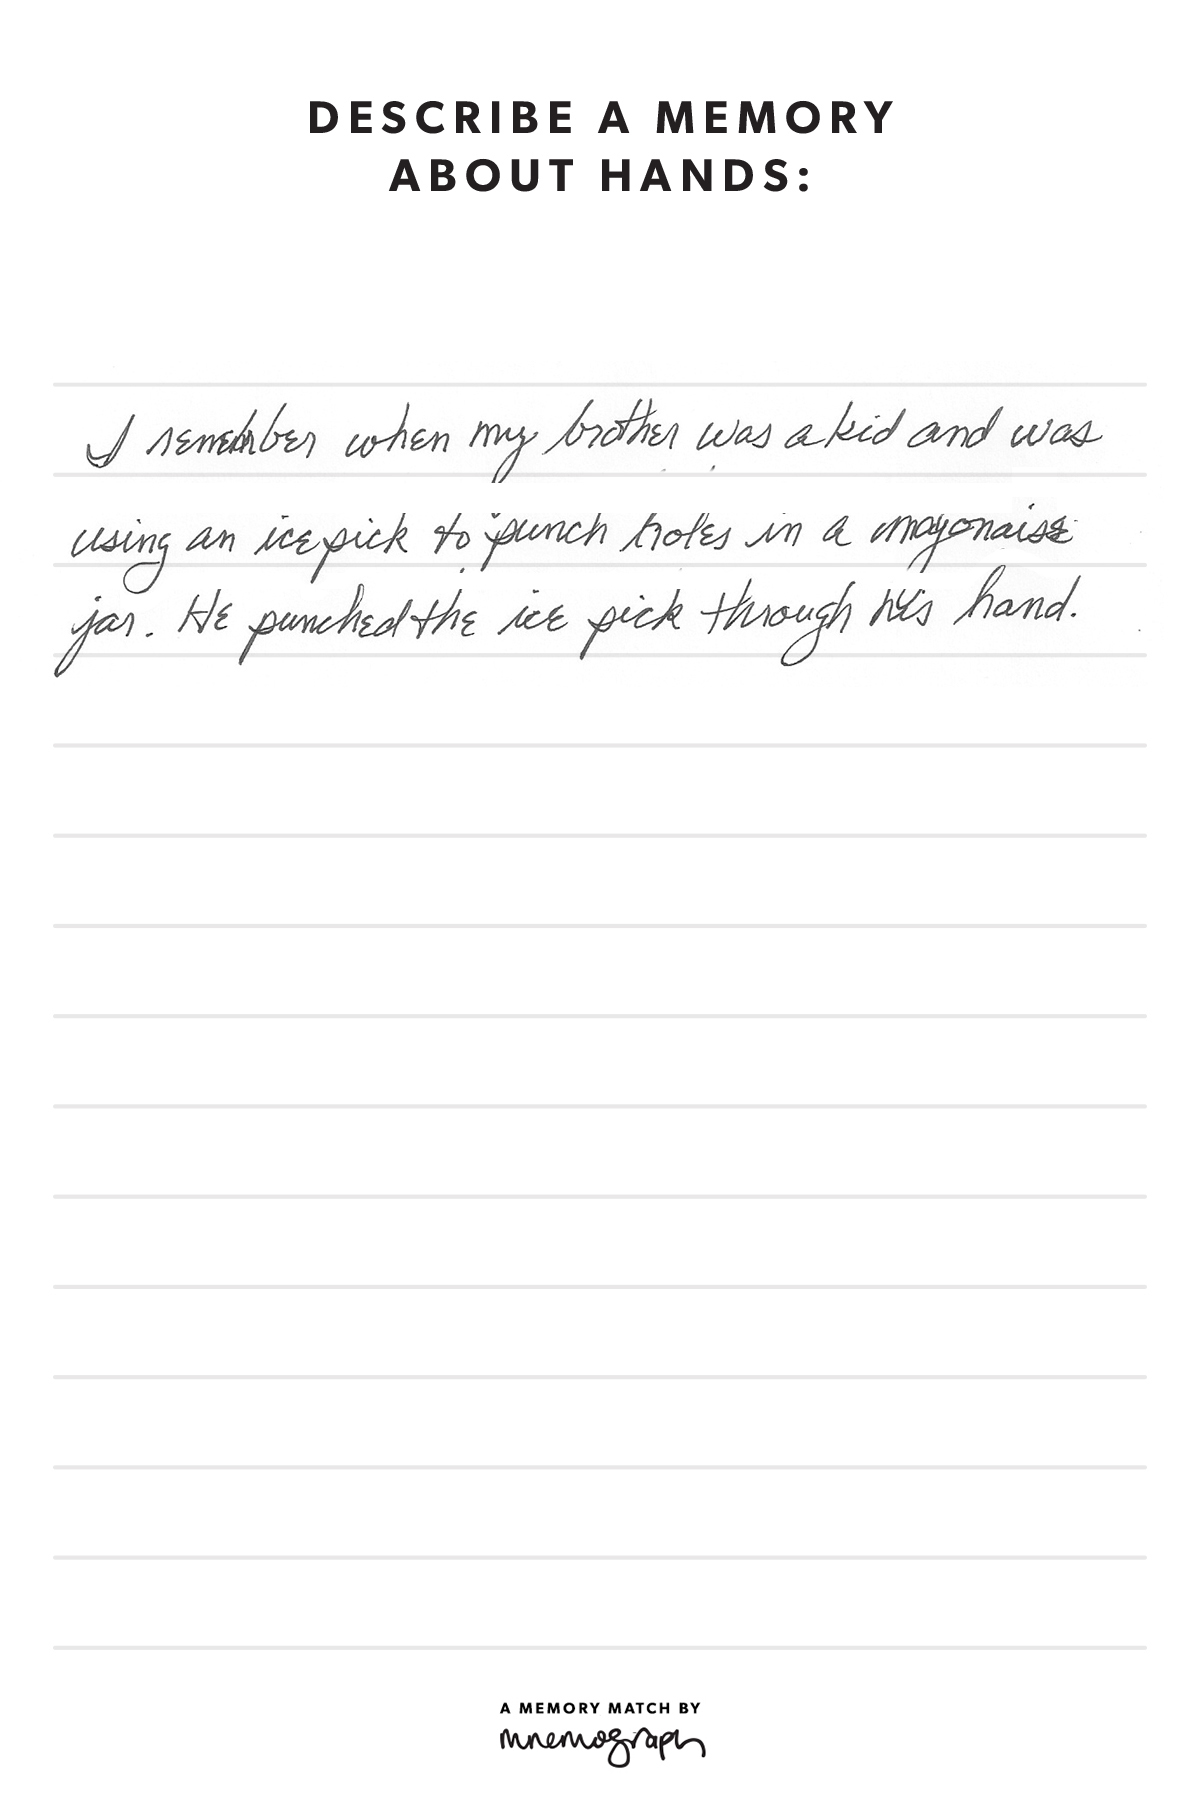 DESCRIBE A MEMORY
ABOUT HANDS:
I remember when my brother was a kid and was
using an ice pick to punch holes in a mayonaise
jar. He punched the ice pick through his hand.
A MEMORY MATCH BY
mnemograph